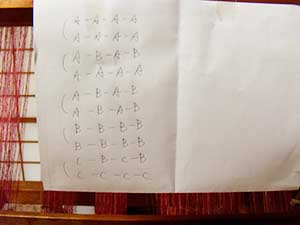 ( A - A - A - A
A - A - A - A
( A - B - A - B
A - A - A - A
( A - B - A - B
A - B - A - B
( B - B - B - B
B - B - B - B
( C - B - C - B
C - C - C - C